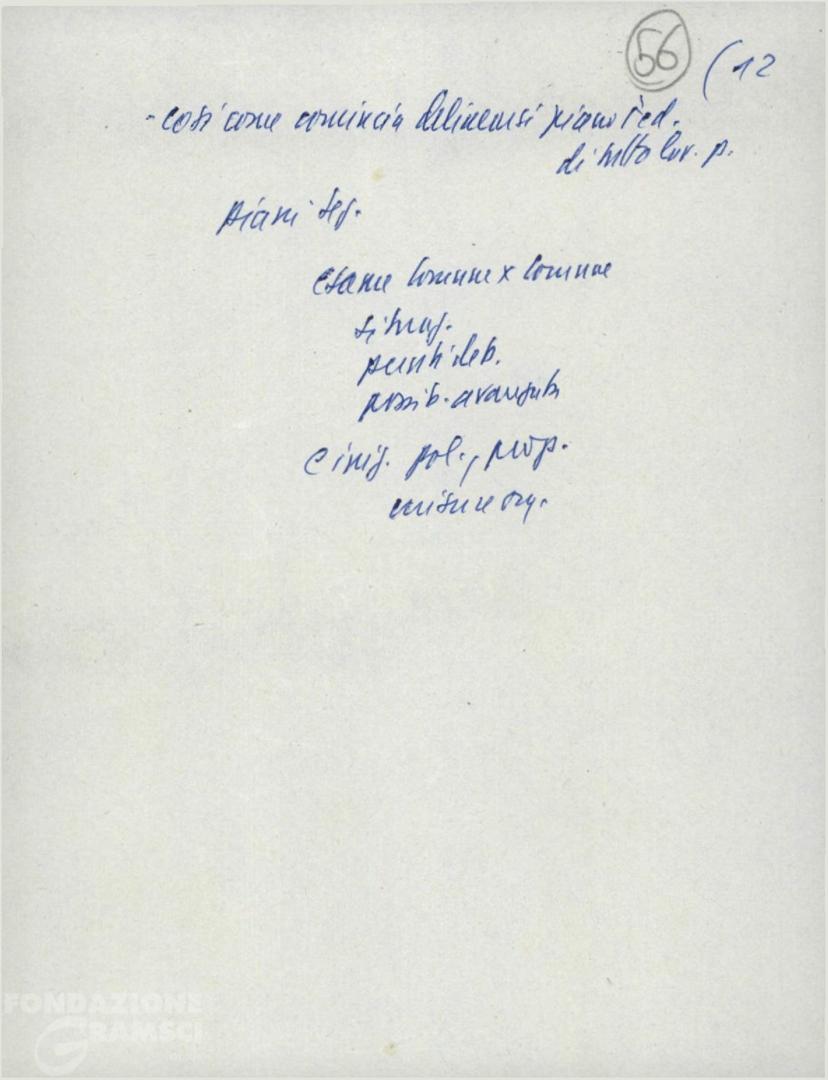 56 (12
- così come comincia delinearsi piano fed.
di tutto lav. p.
piani seg.
esame Comune x Comune
situaz.
punti deb.
possib. avanzata
e iniz. pol., prop.
misure org.
FONDAZIONE
GRAMSCI